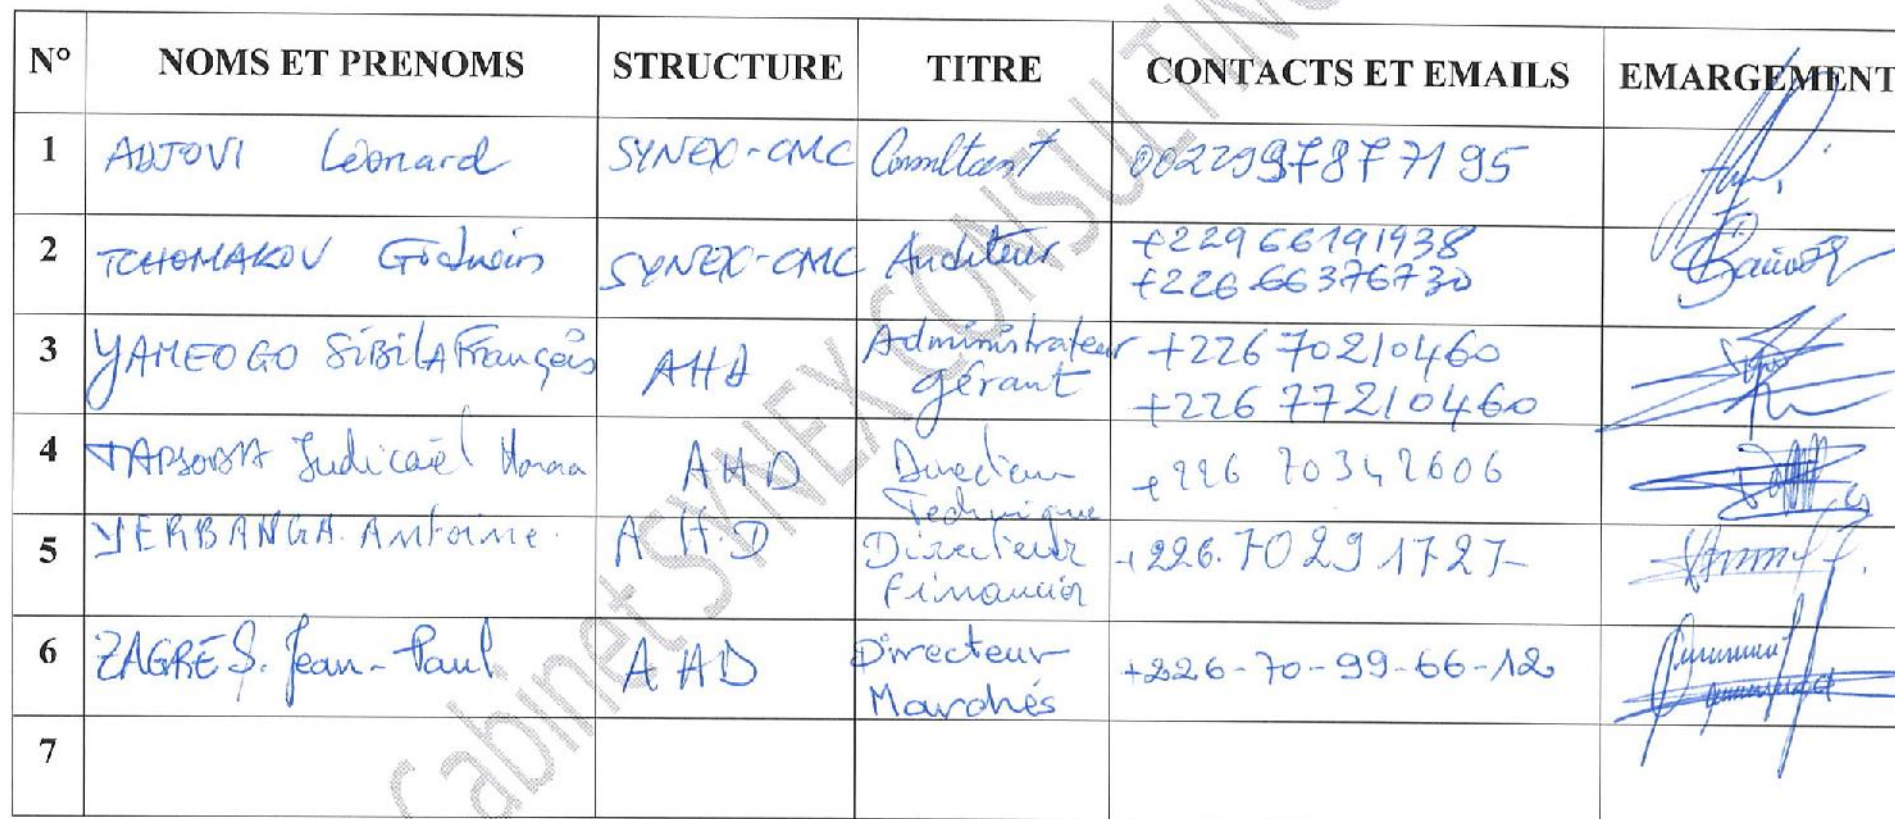 N° NOMS ET PRENOMS STRUCTURE TITRE CONTACTS ET EMAILS EMARGEMENT
1 ADJOVI Léonard SYNEX-CMC Consultant 0022997877195
2 TCHOMAKOU SYNEX-CMC Auditeur +229 66191938
+226 66376730
3 YAMEOGO SIBILA François AHD Administrateur +226 70210460
gérant +226 77210460
4 TAPSOBA Judicaël AHD Directeur +226 70342606
Technique
5 YERBANGA. Antoine. A.H.D Directeur +226. 70 29 17 27
Financier
6 ZAGRE S. Jean-Paul AHD Directeur +226-70-99-66-12
Marchés
7
Cabinet SYNEX CONSULTING